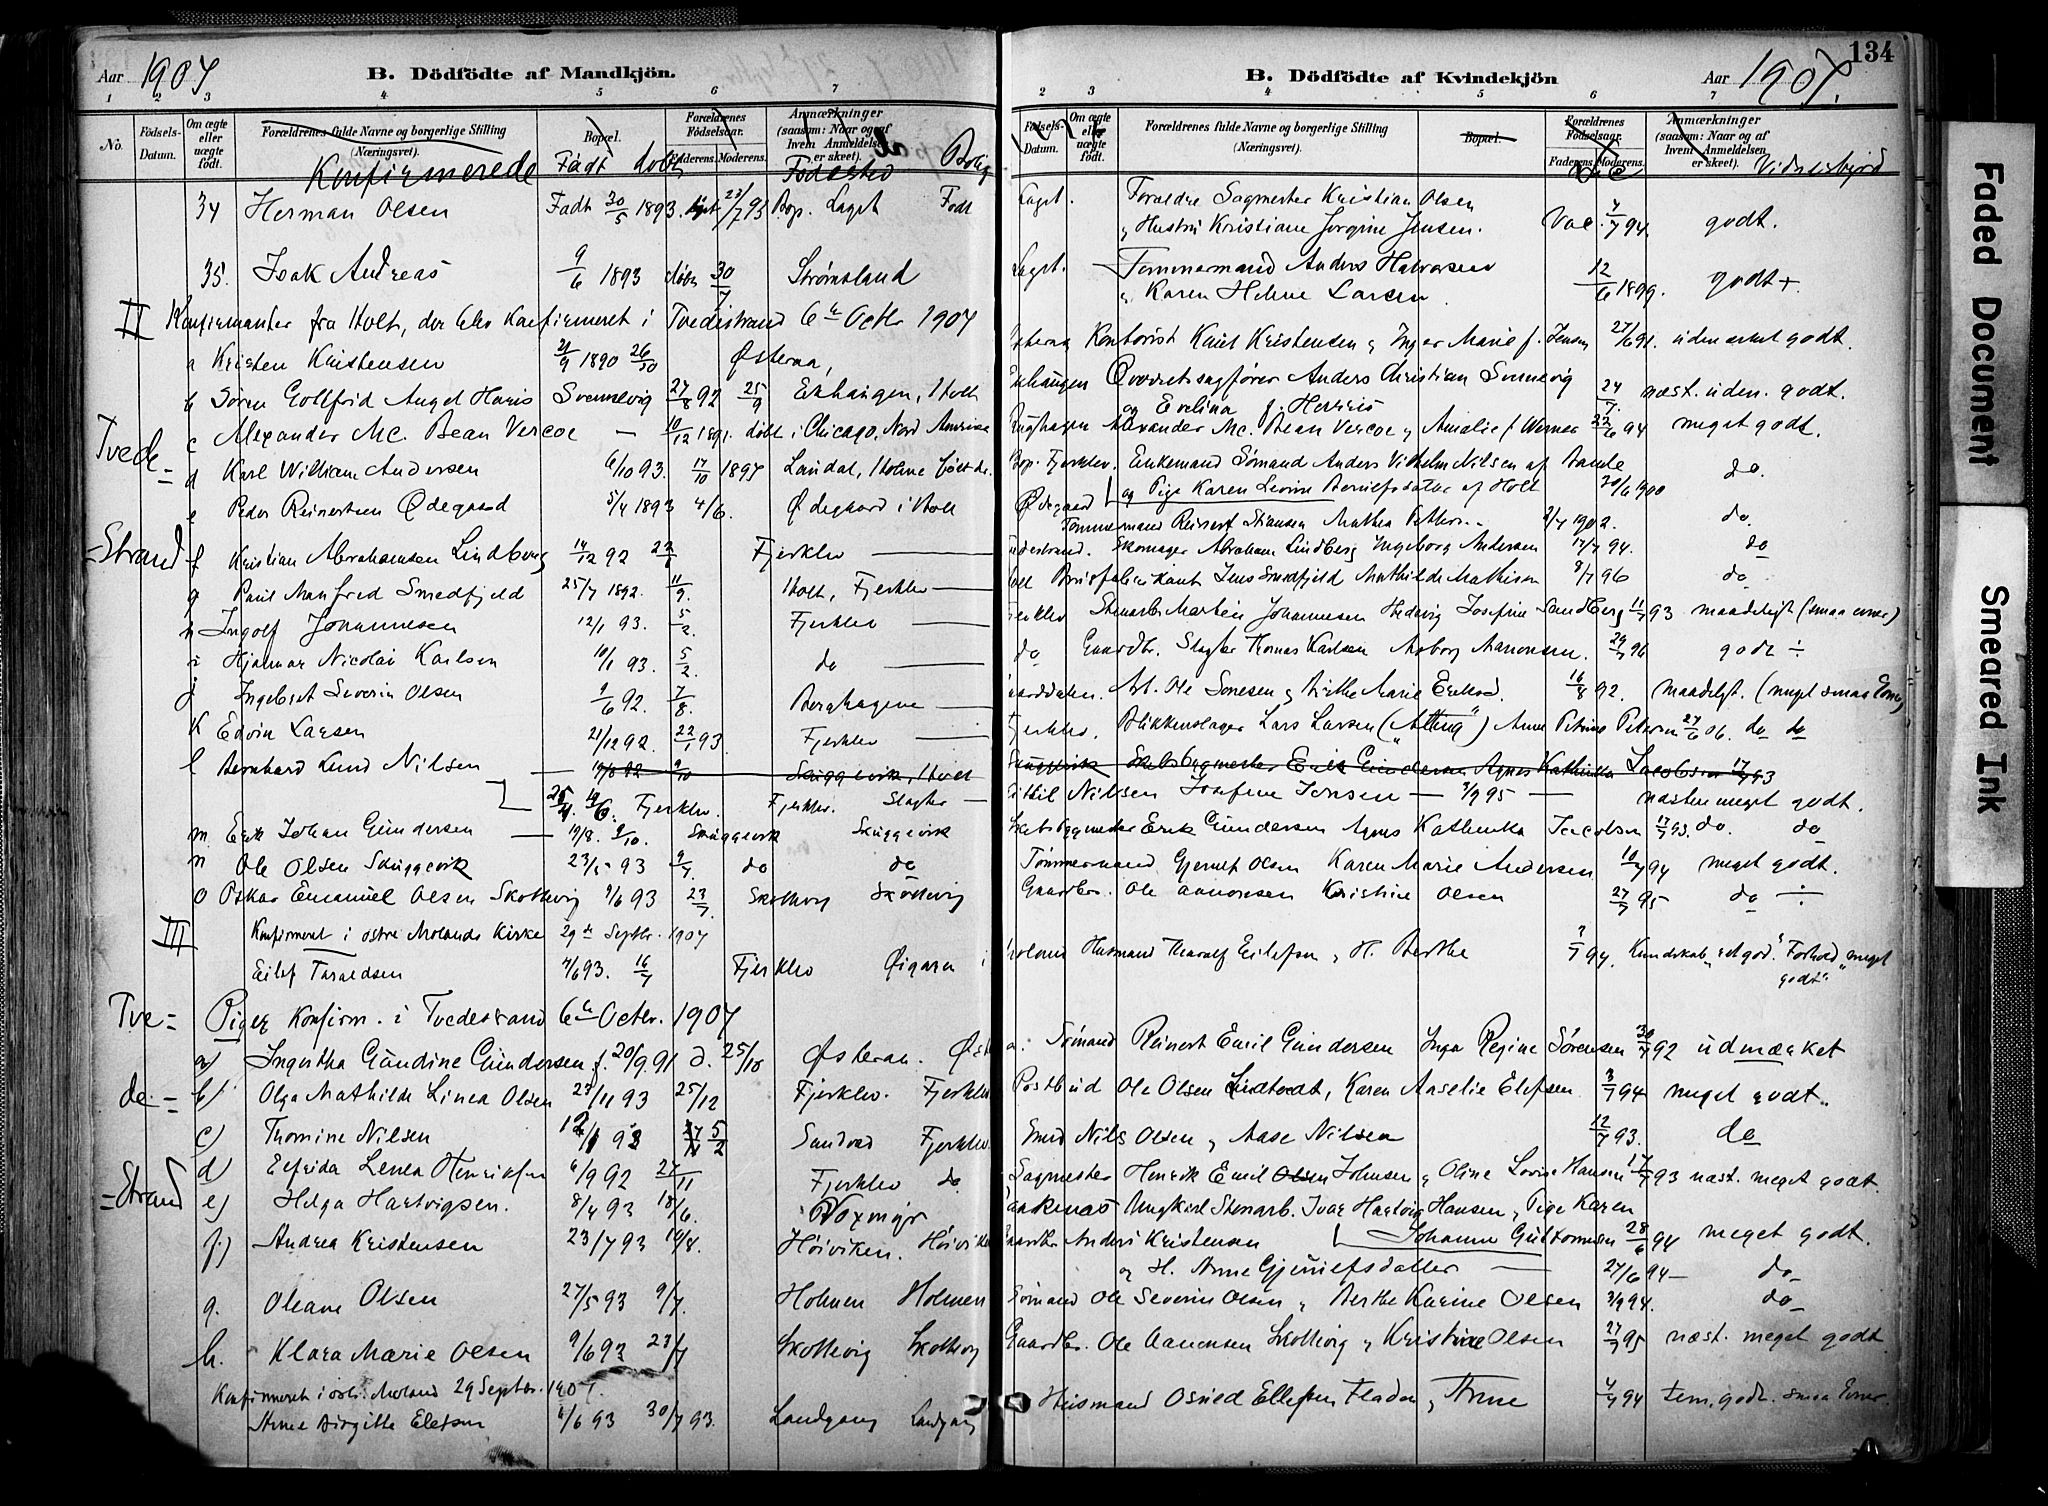 Aar 1907 B. Dödfödte af Mandkjön.
1 2 3 4 5 6 7
No. Födsels-Datum. Om ægte eller uægte født. Forældrenes fulde Navne og borgerlige Stilling (Næringsvei). Bopæl. Forældrenes Födselsaar. Faderens. Moderens. Anmærkninger (saasom: Naar og af hvem Anmeldelsen er skeet).
Konfirmerede Født døbt Fødested Bolig
34 Herman Olsen Født 30/5 1893 23/7 93 Bop. Laget Født
35. Isak Andreas 9/6 1893 døbt 30/7 Strømsland
II Konfirmanter fra Holt, der blev konfirmeret i Tvedestrand 6te Octbr 1907
a Kristen Kristensen 21/9 1890 26/10 Østeraa,
b Søren Gottfrid Angel Haris Svennevig 27/8 92 25/9 Ekhaugen, Holt
Tvede=
c Alexander Mc. Bean Vercoe — 10/12 1891 døbt i Chicago, Nord Amerika
d Karl William Andersen 6/10 93. 17/10 1897 Landal, Holme
e Peder Reinertsen Ødegaard 5/4 1893 4/6. Ødegaard i Holt
=Strand
f Kristian Abrahamsen Lindberg 14/12 92 22/1 Fjerklev —
g Paul Manfred Smedfjeld 25/7 1892. 11/9. Holt, Fjerklev —
h Ingolf Johannesen 12/1 93. 5/2. Fjerklev —
i Hjalmar Nicolai Karlsen 10/1 93. 5/2. do —
j Ingebret Severin Olsen 9/6 92. 7/8. Berghagene —
k Edvin Larsen 21/12 92. 22/1 93. Fjerklev —
l Bernhard Lund Nilsen — 19/8 92 9/10 Skuggevik, Holt
25/4. 19/6. Fjerklev. Fjerklev. Slagter —
m Erik Johan Gundersen — 19/8. 9/10. Skuggevik Skuggevik
n Ole Olsen Skuggevik 23/5 93 9/7. do do
o Oskar Emanuel Olsen Skottevig 9/6 93 23/7. Skottevig Skottevig
III Konfirmeret i østre Molands Kirke 29de Septbr. 1907
Eilef Taraldsen 4/6 93. 16/7 Fjerklev Øigaren i
Tve= Piger Konfirm. i Tvedestrand 6te Octbr. 1907
a) Ingertha Gundine Gundersen f. 20/9 91 d. 25/10 Østeraa. Øst
de= b) Olga Mathilde Linea Olsen 23/11 93 25/12 Fjerklev. Fjerklev
c) Thomine Nilsen 12/1 93 5/2 Sandvad Fjerklev
=Strand d) Elfrida Lenea Henriksen 6/9 92 27/11 Fjerklev do
e) Helga Hartvigsen. 8/4 93 18/6. Voxmyr
f) Andrea Kristensen 23/7 93 10/8. Høiviken. Høiviken
g. Oleane Olsen 27/5 93 9/7. Holmen Holmen
h. Klara Marie Olsen 9/6 93 23/7 Skottevig Skottevig
Konfirmeret i østr. Moland 29 Septbr. 1907.
Anne Birgitte Elefsen 6/6 93 30/7 93. Landgang Landgang
134
B. Dödfödte af Kvindekjön Aar 1907.
2 3 4 5 6 7
Födsels-Datum. Om ægte eller uægte født. Forældrenes fulde Navne og borgerlige Stilling (Næringsvei). Bopæl. Forældrenes Födselsaar. Faderens. Moderens. Anmærkninger (saasom: Naar og af hvem Anmeldelsen er skeet).
Vac Vidnesbyrd
Laget. Forældre Sagmester Kristian Olsen
og Hustru Kristiane Jorgine Jensen. Vac. 4/7 94. godt.
Laget. — Tømmermand Anders Halvorsen
og Karen Helene Larsen. 12/6 1899. godt +.
Østeraa Kontorist Knut Kristensen og Inger Marie f. Jensen 27/6 91. udmærket godt.
Ekhaugen Overretssagfører Anders Christian Svennevig
og Evelina f. Herris 24/7. næst. uden. godt.
Alexander Mc. Bean Vercoe og Amalie f. Werner 22/6 94 meget godt.
Bop. Fjerklev. Enkemand Sømand Anders Vilhelm Nilsen af Bamle
og Pige Karen Levine af Holt 30/6 1900 do.
Ødegaard Tømmermand Reinert Mathea 2/7 1902. do
Tvedestrand. Skomager Abraham Lindberg Ingeborg Andersen 17/7 94. do
Holt Brusfabrikant Jens Smedfjeld Mathilde Mathisen 8/7 96 do
Fjerklev Stenarb. Martin Johannesen Hedevig Josefine Sandberg 11/7 93 maadeligt (smaa evner)
do Gaardbr. Slagter Thomas Karlsen Aaborg Aanonsen. 29/7 96 godt ÷
Arb. Ole Sørensen og Birthe Marie Eriksd. 16/8 92. maadeligt. (meget smaa Evner)
Fjerklev. Blikkenslager Lars Larsen ("Alting") Anne Petrine Petersen 27/6 06. do do
Skuggevik Skibsbygmester Erik Gundersen Agnes Kathinka Jacobsen 17/7 93
Nilsen Josefine Jensen — 3/9 95 — næsten meget godt.
Skibsbygmester Erik Gundersen Agnes Kathinka Jacobsen 17/7 93. do. do
Tømmermand Gjeruf Olsen Karen Marie Andersen 10/7 94 meget godt.
Gaardbr. Ole Aanonsen Kristine Olsen 27/7 95 do ÷
Moland Husmand Tharalf Eilefsen og H. Berthe 7/7 94. Kundskab "ret god". Forhold "meget
godt".
Sømand Reinert Emil Gundersen Inga Regine Sørensen 30/7 92 udmærket
Postbud Ole Olsen Lindtvedt, Karen Anselie Elefsen 3/7 94 meget godt.
Smed Nils Olsen og Aase Nilsen 12/7 93. do
Sagmester Henrik Emil Olsen Johnsen og Oline Lovise Hansen 17/7 93 næst. meget godt.
Ungkarl Stenarb. Ivar Hartvig Hansen, Pige Karen
Johanne Guttormsen 28/6 94 meget godt.
Gaardbr Anders Kristensen
og H. Anne Gjerulfsdatter — 27/6 94 — do
Sømand Ole Severin Olsen og Berthe Karine Olsen 3/9 94. do
Gaardbr. Ole Aanonsen Skottevig og Kristine Olsen 27/7 95 næst. meget godt
Husmand Osuld Ellefsen Fladen og Anne 4/7 94 tem. godt. smaa Evner.
Faded Document
Smeared Ink